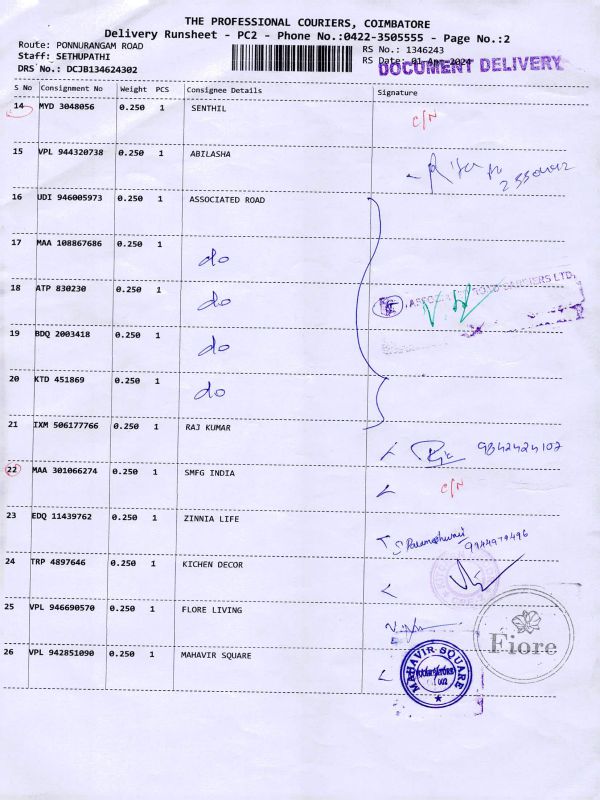 THE PROFESSIONAL COURIERS, COIMBATORE
Delivery Runsheet - PC2 - Phone No.:0422-3505555 - Page No.:2
Route: PONNURANGAM ROAD
RS No.: 1346243
Staff: SETHUPATHI
RS Date: 01 Apr 2024
DOCUMENT DELIVERY
DRS No.: DCJB134624302
S No Consignment No Weight PCS Consignee Details Signature
14 MYD 3048056 0.250 1 SENTHIL C/N
15 VPL 944320738 0.250 1 ABILASHA
16 UDI 946005973 0.250 1 ASSOCIATED ROAD
17 MAA 108867686 0.250 1 do
18 ATP 830230 0.250 1 do
19 BDQ 2003418 0.250 1 do
20 KTD 451869 0.250 1 do
21 IXM 506177766 0.250 1 RAJ KUMAR 9842424107
22 MAA 301066274 0.250 1 SMFG INDIA C/N
23 EDQ 11439762 0.250 1 ZINNIA LIFE
24 TRP 4897646 0.250 1 KICHEN DECOR
25 VPL 946690570 0.250 1 FLORE LIVING
Fiore
26 VPL 942851090 0.250 1 MAHAVIR SQUARE
MAHAVIR SQUARE